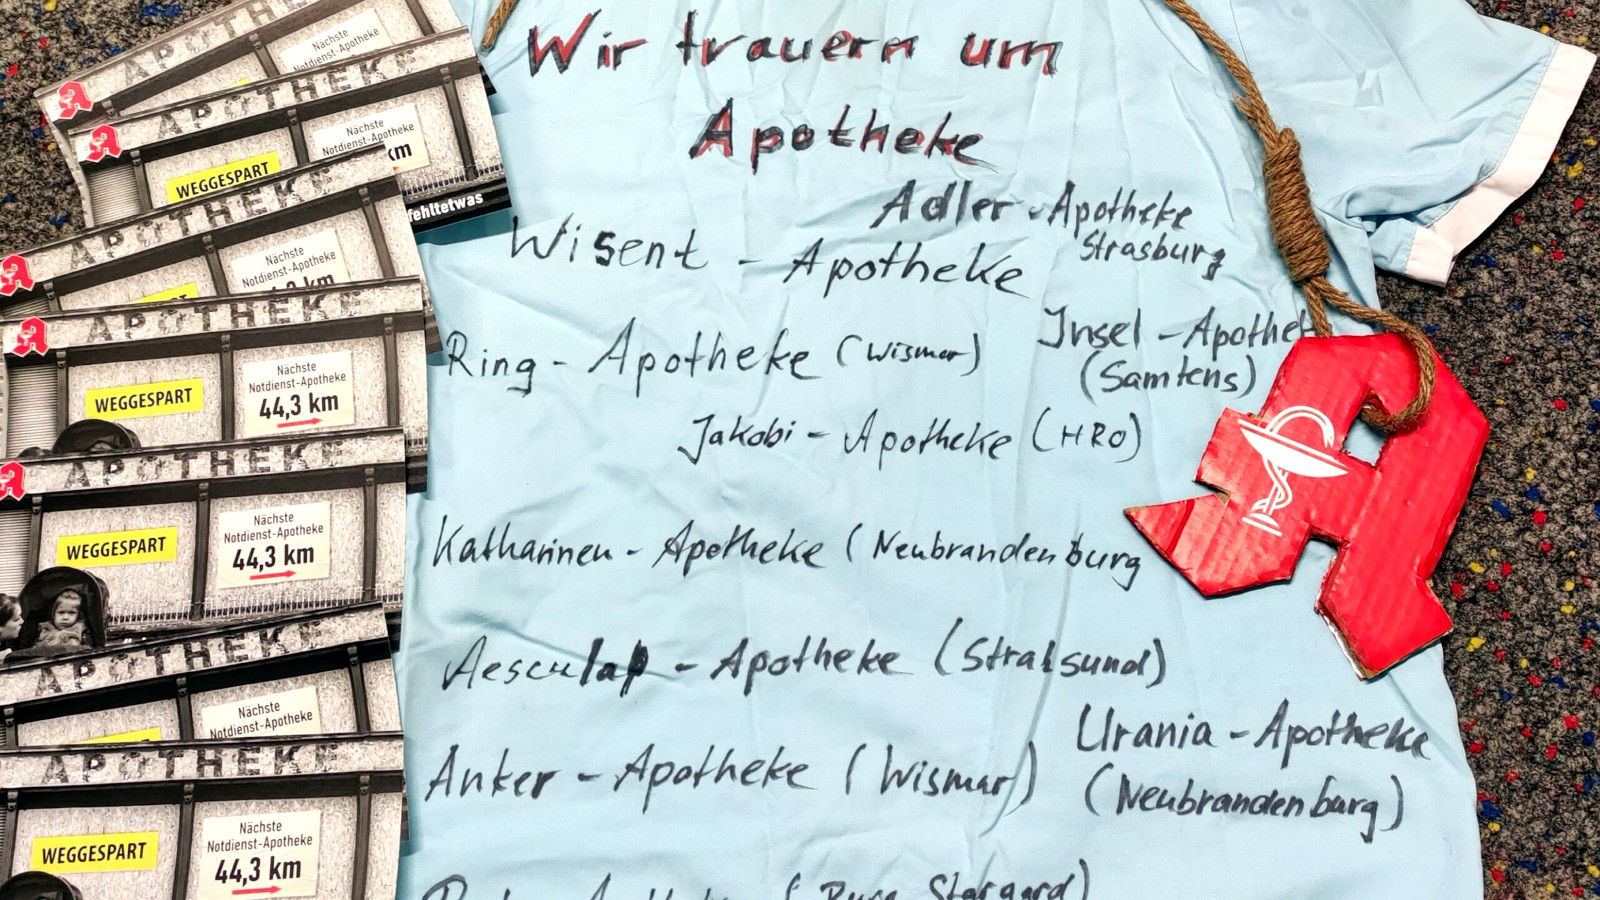 APOTHE
Nächste
Notdienst-Apotheke
APOTHEKE
Nächste
Notdienst-Apotheke
km
WEGGESPART
fehltetwas
APOTHEKE
Nächste
Notdienst-Apotheke
km
APOTHEKE
Nächste
Notdienst-Apotheke
44,3 km
WEGGESPART
APOTHEKE
Nächste
Notdienst-Apotheke
44,3 km
WEGGESPART
APOTHEKE
Nächste
Notdienst-Apotheke
APOTHEKE
Nächste
Notdienst-Apotheke
44,3 km
WEGGESPART
Wir trauern um
Apotheke
Adler-Apotheke
Strasburg
Wisent - Apotheke
Insel - Apothek
(Samtens)
Ring - Apotheke (Wismar)
Jakobi - Apotheke (HRO)
Katharinen - Apotheke (Neubrandenburg
Aesculap - Apotheke (Stralsund)
Urania - Apotheke
(Neubrandenburg)
Anker - Apotheke (Wismar)
(Burg Stargard)